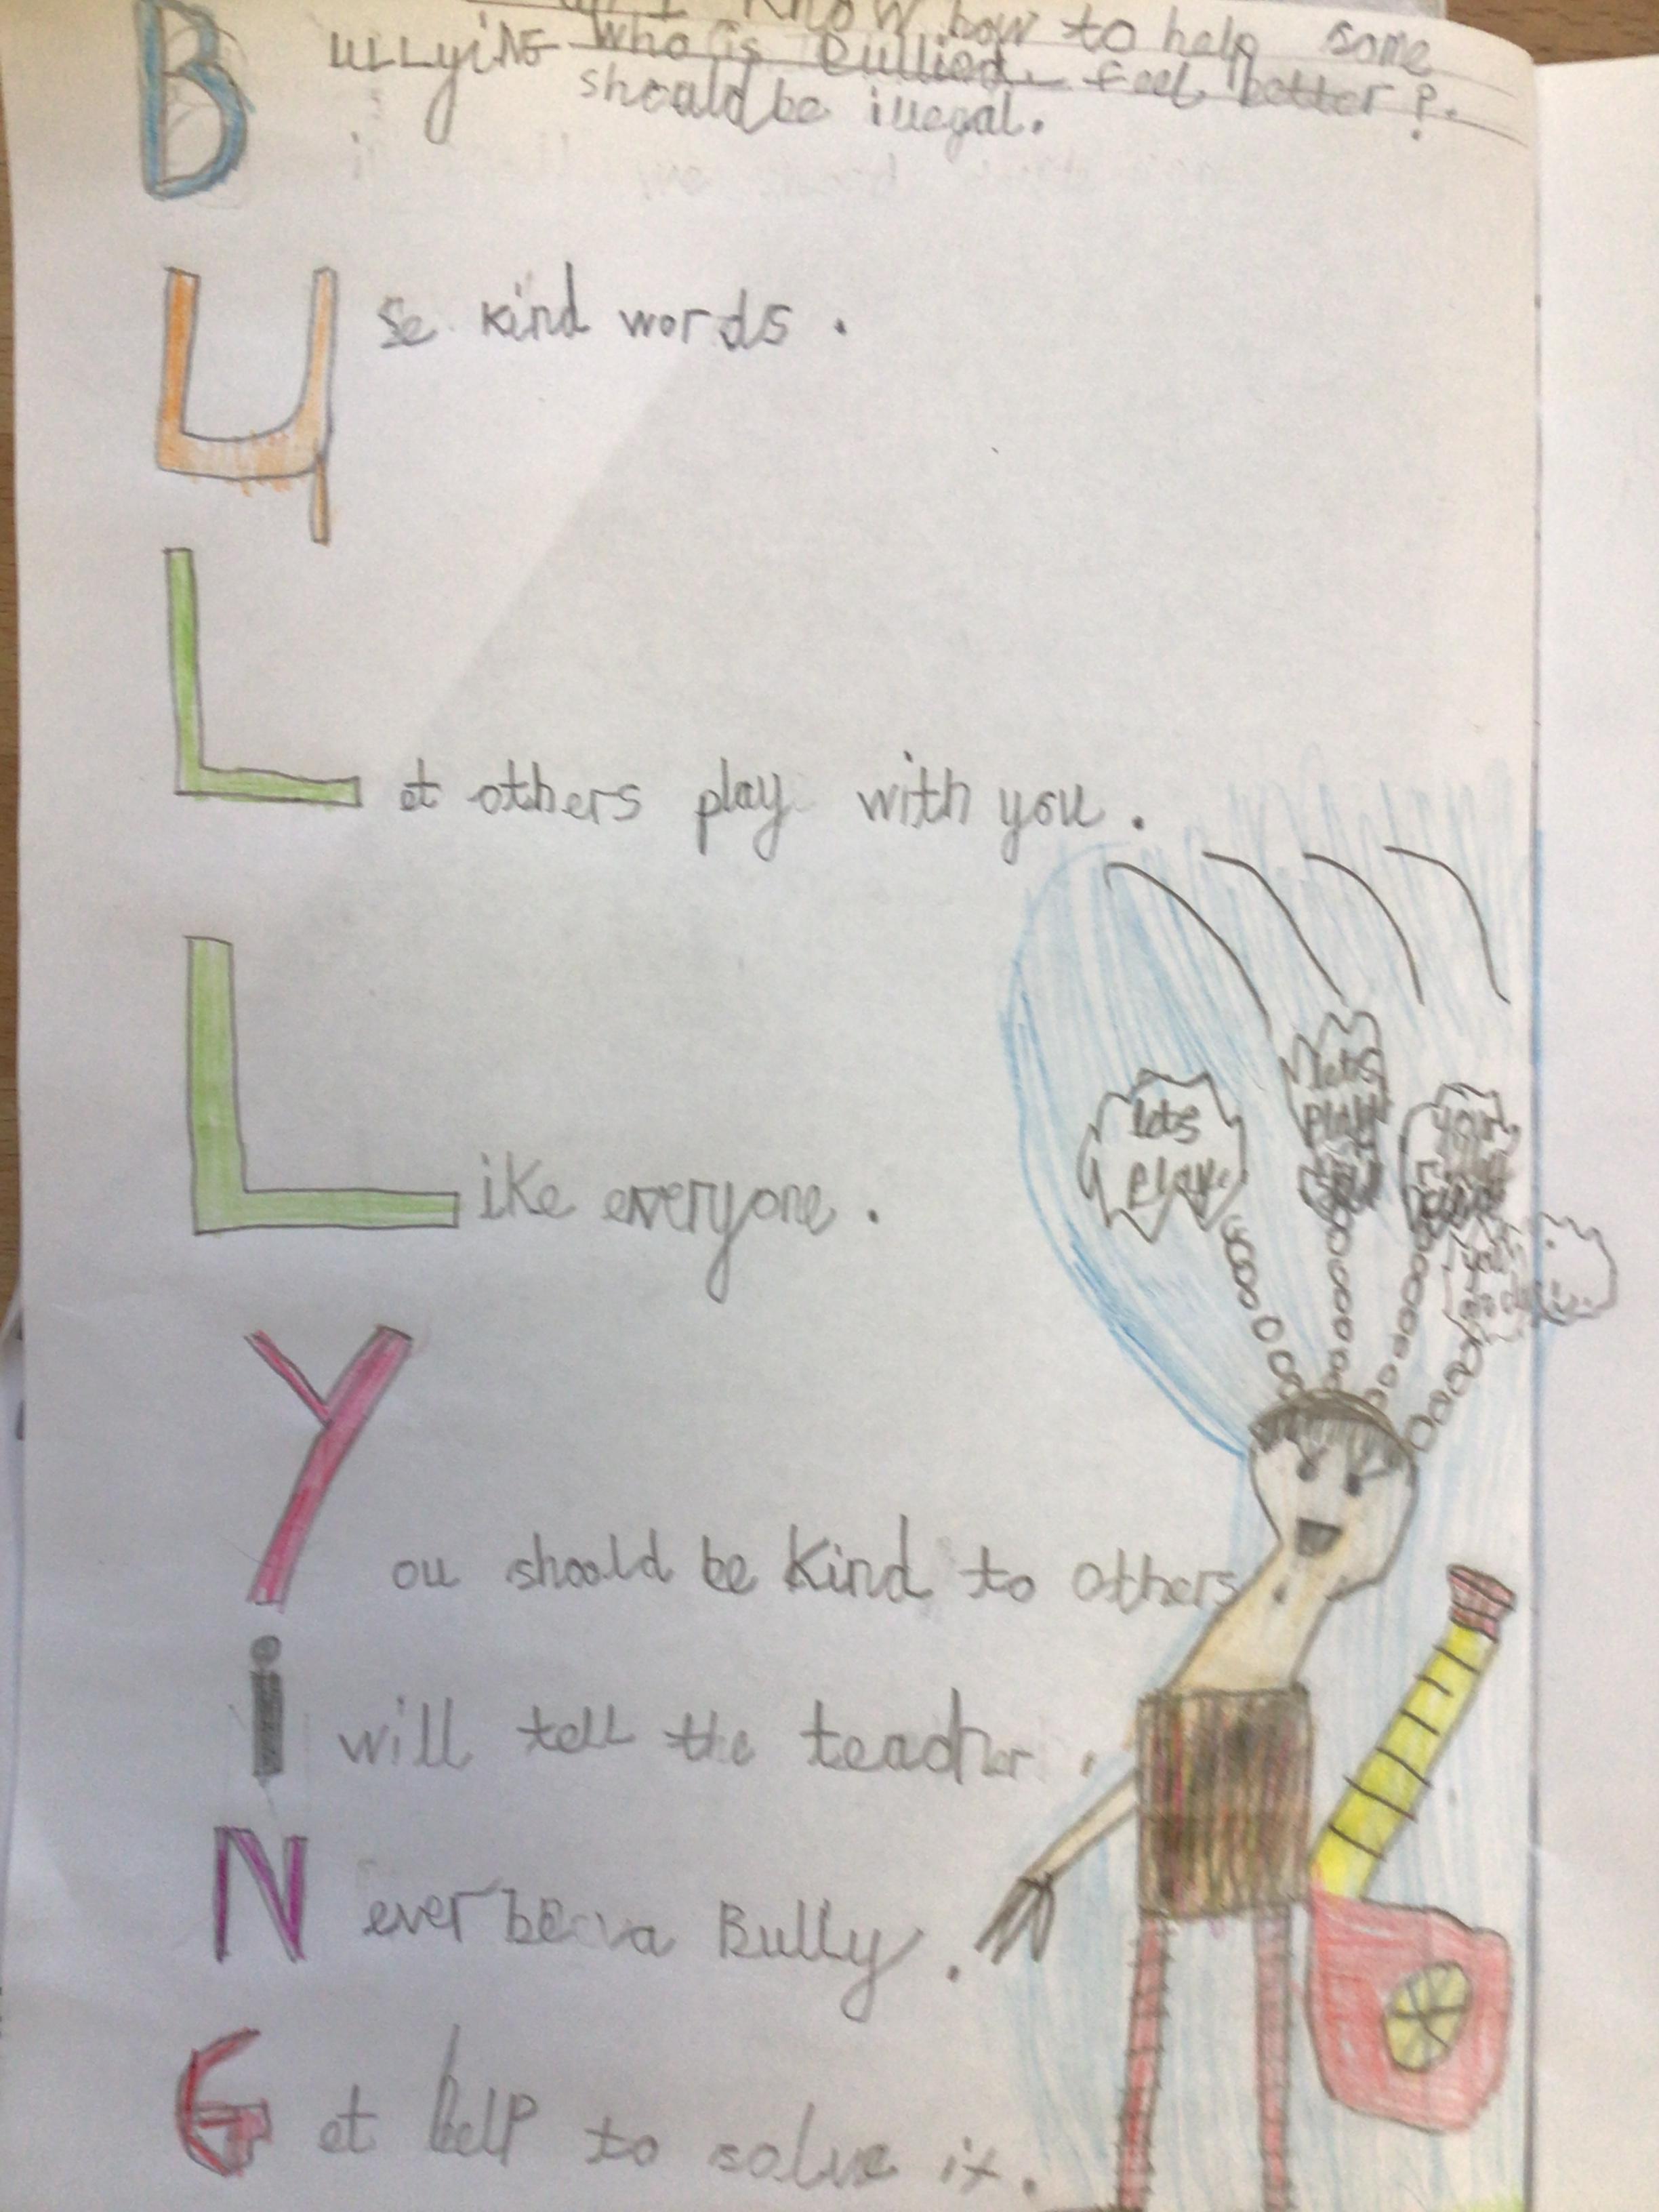 I know how to help some
BULLYiNG who is Bullied feel better?
should be illegal.
Use kind words.
Let others play with you.
Like everyone.
lets
play
lets
play
your
You should be kind to others
i will tell the teacher.
Never be a Bully.
Get help to solve it.